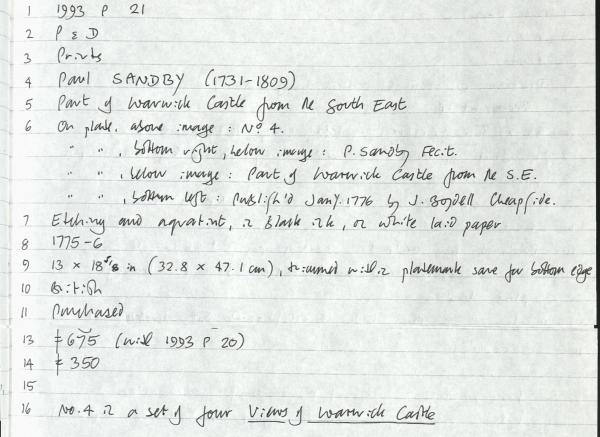 1 1993 P 21
2 P & D
3 Prints
4 Paul SANDBY (1731-1809)
5 Part of Warwick Castle from the South East
6 On plate, above image : No 4.
" " , bottom right, below image : P. Sandby Fecit.
" " , below image : Part of Warwick Castle from the S.E.
" " , bottom left : Publish'd Jany. 1776 by J. Boydell Cheapside.
7 Etching and aquatint, in black ink, on white laid paper
8 1775-6
9 13 x 18 5/8 in (32.8 x 47.1 cm), trimmed within platemark save for bottom edge
10 British
11 Purchased
13 £675 (with 1993 P 20)
14 £350
15
16 No. 4 in a set of four Views of Warwick Castle